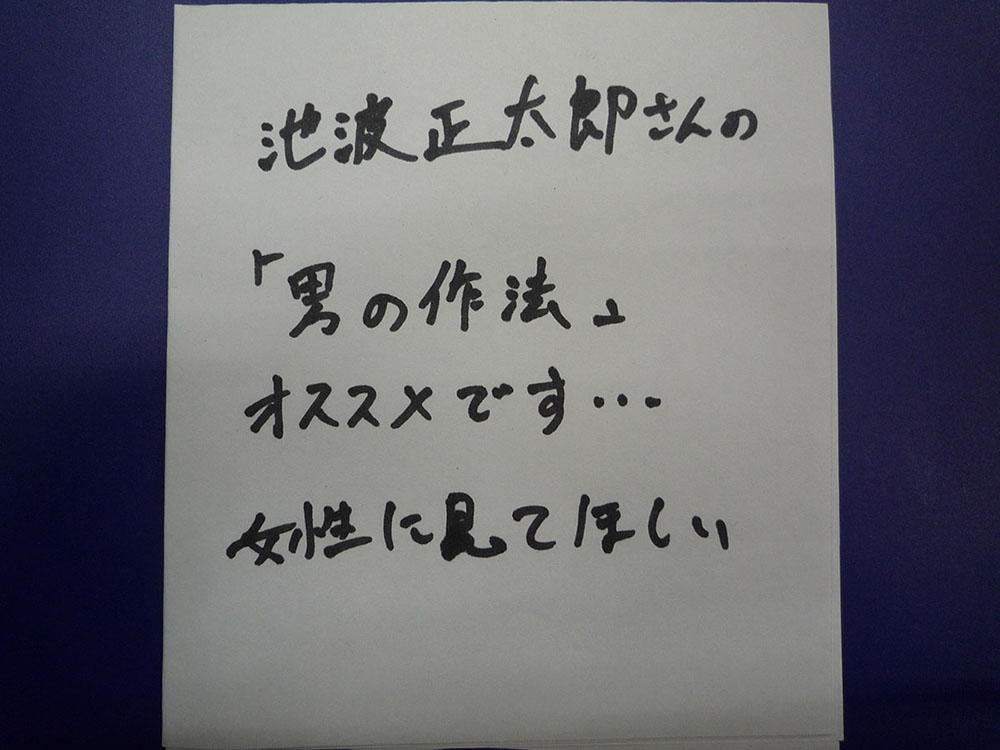 池波正太郎さんの
「男の作法」
オススメです…
女性に見てほしい